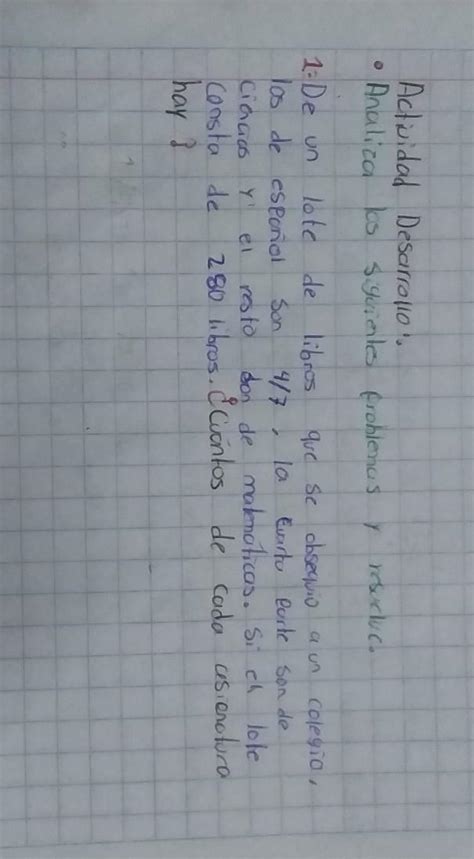 Actividad Desarrollo:
• Analiza los siguientes problemas y resuelve.
1: De un lote de libros que se obsequio a un colegio,
los de español son 4/7, la cuarta parte son de
ciencias y el resto son de matemáticas. Si el lote
consta de 280 libros. ¿Cuántos de cada asignatura
hay?